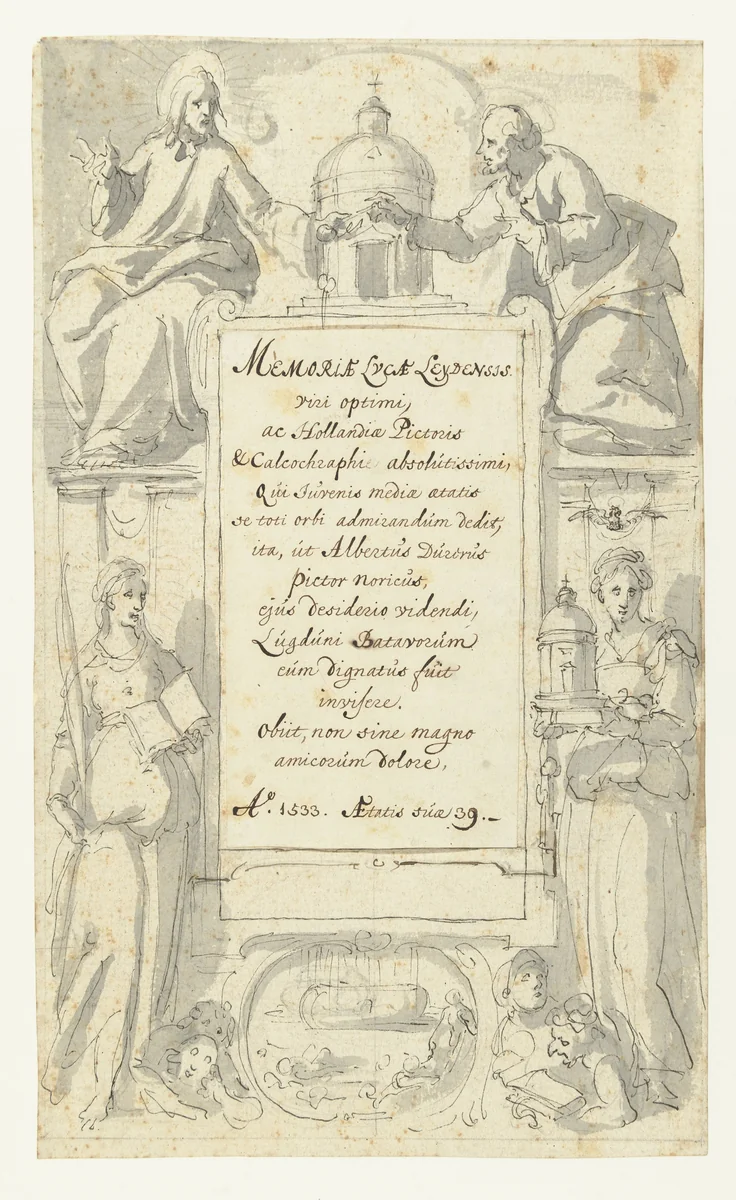 MEMORIÆ LVCÆ LEYDENSIS
viri optimi,
ac Hollandiæ Pictoris
& Calcochraphi absolútissimi,
Qui Iúvenis mediæ ætatis
se toti orbi admirandúm dedit,
ita, út Albertús Dúrerús
pictor noricús,
ejús desiderio videndi,
Lúgdúni Batavorúm
eúm dignatús fúit
invisere.
Obiit, non sine magno
amicorúm dolore,
Aº. 1533. Ætatis súæ 39.–